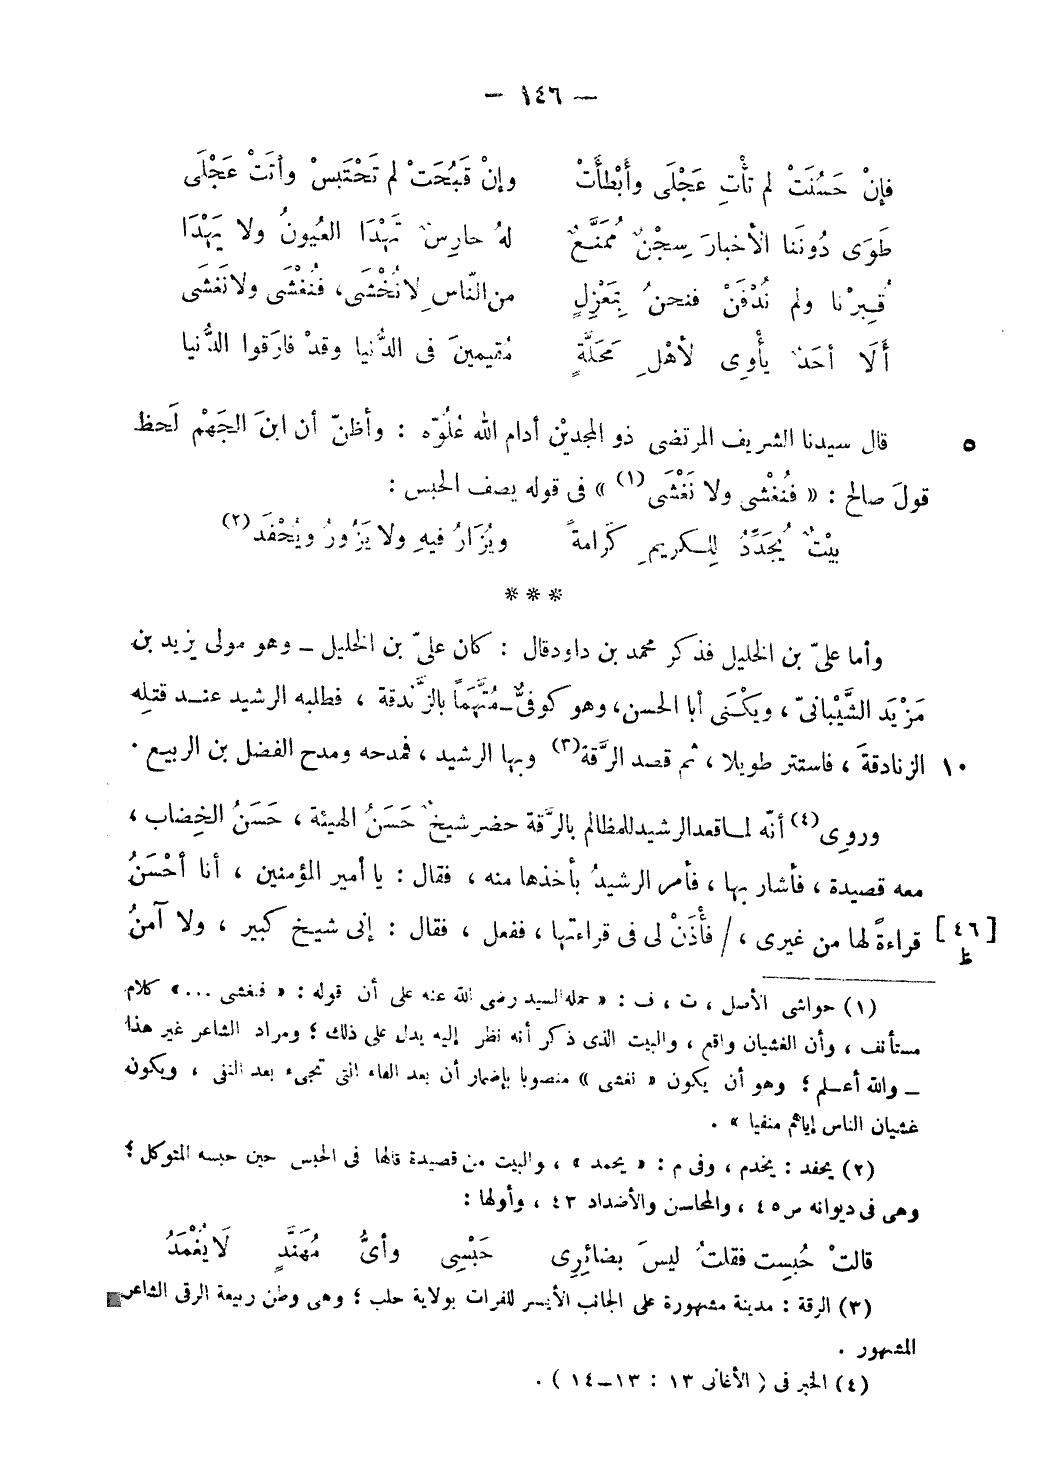 — ١٤٦ —
فإنْ حَسُنَتْ لم تأْتِ عَجْلَى وأَبْطأَتْ وإنْ قَبُحَتْ لم تَحْتَبِسْ وأتَتْ عَجْلَى
طَوَى دُونَنا الأخبارَ سِجْنٌ مُمَنَّعٌ لهُ حارِسٌ تَهْدَا العُيونُ ولا يَهْدَا
قُبِرْنا ولم نُدْفَنْ فنحنُ بِمَعْزِلٍ من النّاسِ لا نُخْشَى، فنُغْشَى ولا نَغْشَى
أَلَا أحَدٌ يأْوِى لأهْلِ مَحَلَّةٍ مُقيمينَ فى الدُّنيا وقدْ فارَقوا الدُّنيا
٥ قال سيدنا الشريف المرتضى ذو المجديْن أدام الله عُلُوّه : وأظنّ أن ابنَ الجَهْم لَحظ
قولَ صالح : « فنُغْشى ولا نَغْشَى (١) » فى قوله يصف الحبس :
بيْتٌ يُجَدِّدُ لِلكريمِ كَرامةً ويُزَارُ فيهِ ولا يَزُورُ ويُحْفَد (٢)
***
وأما علىّ بن الخليل فذكر محمد بن داود قال : كان علىّ بن الخليل ـ وهو مولى يزيد بن
مَزْيَد الشَّيْبانىّ ، ويكْنَى أبا الحسن، وهو كوفىٌّ ـ مُتَّهَماً بالزَّندقة ، فطلبه الرشيد عنـد قتلِه
١٠ الزنادقةَ ، فاستتر طويلا ، ثم قصد الرَّقة (٣) وبها الرشيد ، فمدحه ومدح الفضل بن الربيع .
وروِى (٤) أنّه لمـا قعد الرشيد للمظالم بالرَّقة حضر شيخٌ حَسَنُ الهيئة ، حَسَنُ الخضاب ،
معه قصيدة ، فأشار بها ، فأمر الرشيدُ بأخذها منه ، فقال : يا أمير المؤمنين ، أنا أحْسَنُ
[٤٦ ظ] قراءةً لها من غيرى ، / فأْذَنْ لى فى قراءتها ، ففعل ، فقال : إنى شيـخ كبير ، ولا آمنُ
(١) حواشى الأصل ، ت ، ف : « حمله السيد رضى الله عنه على أن قوله : « فنغشى ... » كلام
مستأنف ، وأن الغشيان واقع ، والبيت الذى ذكر أنه نظر إليه يدل على ذلك ؛ ومراد الشاعر غير هذا
ـ والله أعـلم ؛ وهو أن يكون « نغشى » منصوبا بإضمار أن بعد الفاء التى تجىء بعد النفى ، ويكون
غشيان الناس إياهم منفيا » .
(٢) يحفد : يخدم ، وفى م : « يحمد » ، والبيت من قصيدة قالها فى الحبس حين حبسه المتوكل ؛
وهى فى ديوانه ص ٤٥ ، والمحاسن والأضداد ٤٣ ، وأولها :
قالتْ حُبِست فقلتُ ليسَ بضائِرِى حَبْسِى وأىُّ مُهَنَّدٍ لَا يُغْمَدُ
(٣) الرقة : مدينة مشهورة على الجانب الأيسر للفرات بولاية حلب ؛ وهى وطن ربيعة الرقى الشاعر
المشهور .
(٤) الخبر فى ( الأغانى ١٣ : ١٣ـ١٤ ) .